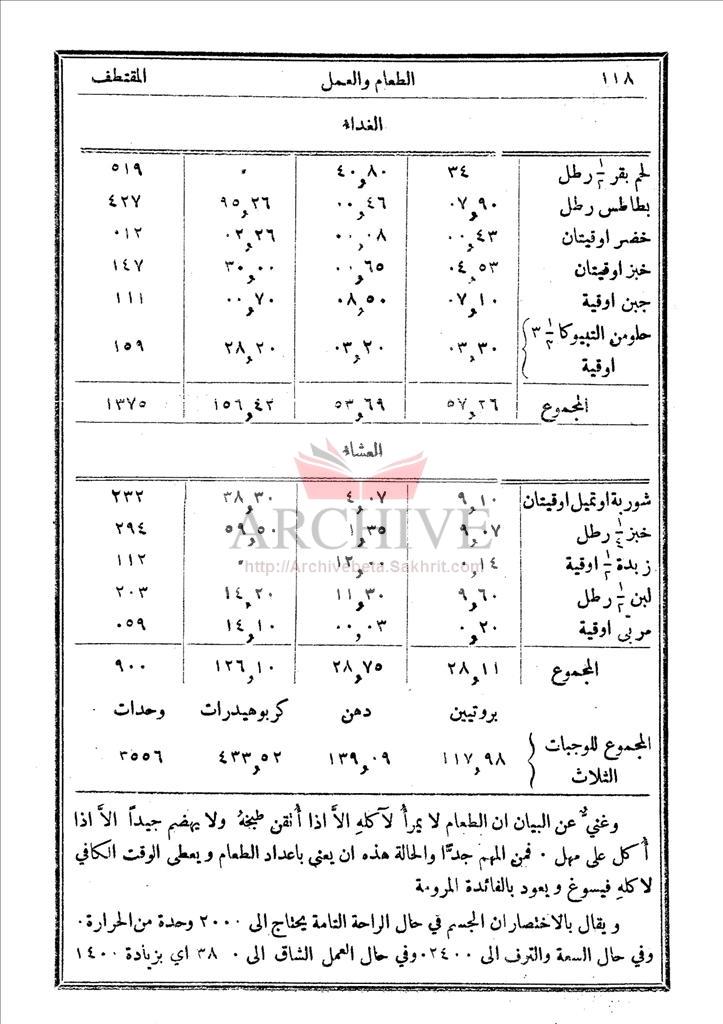 ١١٨ الطعام والعمل المقتطف
الغداء
لحم بقر ١/٢ رطل ٣٤ ٤٠,٨٠ ٠ ٥١٩
بطاطس رطل ٠٧,٩٠ ٠٠,٤٦ ٩٥,٢٦ ٤٢٧
خضر اوقيتان ٠٠,٤٣ ٠٠,٠٨ ٠٢,٢٦ ٠١٢
خبز اوقيتان ٠٤,٥٣ ٠٠,٦٥ ٣٠,٠٠ ١٤٧
جبن اوقية ٠٧,١٠ ٠٨,٥٠ ٠٠,٧٠ ١١١
حلو من التبيوكا ١/٢ ٣
اوقية ٠٣,٣٠ ٠٣,٢٠ ٢٨,٢٠ ١٥٩
المجموع ٥٧,٢٦ ٥٣,٦٩ ١٥٦,٤٢ ١٣٧٥
العشاء
شوربة اوتميل اوقيتان ٩,١٠ ٤,٠٧ ٣٨,٣٠ ٢٣٢
خبز ١/٤ رطل ٩,٠٧ ١,٣٥ ٥٩,٥٠ ٢٩٤
زبدة ١/٢ اوقية ٠,١٤ ١٢,٠٠ ٠ ١١٢
لبن ١/٢ رطل ٩,٦٠ ١١,٣٠ ١٤,٢٠ ٢٠٣
مربّى اوقية ٠,٢٠ ٠٠,٠٣ ١٤,١٠ ٠٥٩
المجموع ٢٨,١١ ٢٨,٧٥ ١٢٦,١٠ ٩٠٠
بروتيين دهن كربوهيدرات وحدات
المجموع للوجبات
الثلاث ١١٧,٩٨ ١٣٩,٠٩ ٤٣٣,٥٢ ٣٥٥٦
ARCHIVE
http://Archivebeta.Sakhrit.com
وغنيٌّ عن البيان ان الطعام لا يمرأُ لآكلهِ الاَّ اذا أُتقن طبخهُ ولا يهضم جيداً الاَّ اذا
أُكل على مهل ٠ فمن المهم جدًّا والحالة هذه ان يعنى باعداد الطعام ويعطى الوقت الكافي
لاكلهِ فيسوغ ويعود بالفائدة المرومة
ويقال بالاختصار ان الجسم في حال الراحة التامة يحتاج الى ٢٠٠٠ وحدة من الحرارة٠
وفي حال السعة والترف الى ٢٤٠٠٠وفي حال العمل الشاق الى ٣٨٠٠ اي بزيادة ١٤٠٠